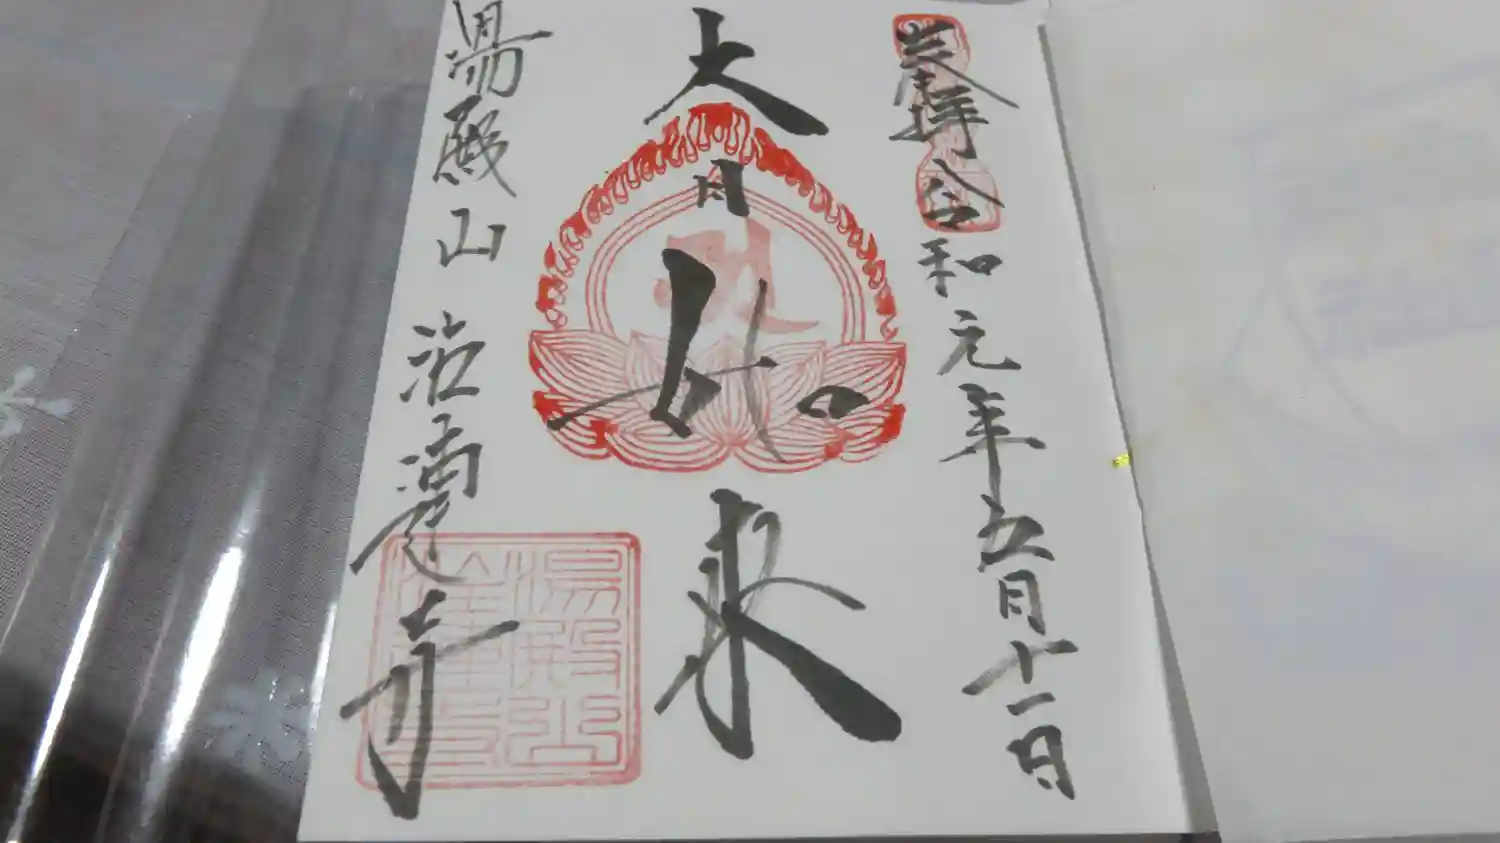 奉拝 令和元年五月十一日
大日如来
湯殿山 寺
湯殿山